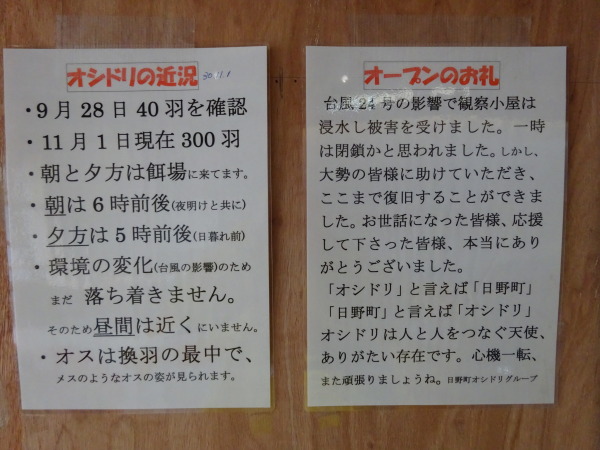 オシドリの近況 30.11.1
・9月28日40羽を確認
・11月1日現在300羽
・朝と夕方は餌場に来てます。
・朝は6時前後(夜明けと共に)
・夕方は5時前後(日暮れ前)
・環境の変化(台風の影響)のため
まだ 落ち着きません。
そのため昼間は近くにいません。
・オスは換羽の最中で、
メスのようなオスの姿が見られます。
オープンのお札
台風24号の影響で観察小屋は
浸水し被害を受けました。一時
は閉鎖かと思われました。しかし、
大勢の皆様に助けていただき、
ここまで復旧することができま
した。お世話になった皆様、応援
して下さった皆様、本当にあり
がとうございました。
「オシドリ」と言えば「日野町」
「日野町」と言えば「オシドリ」
オシドリは人と人をつなぐ天使、
ありがたい存在です。心機一転、
また頑張りましょうね。日野町オシドリグループ